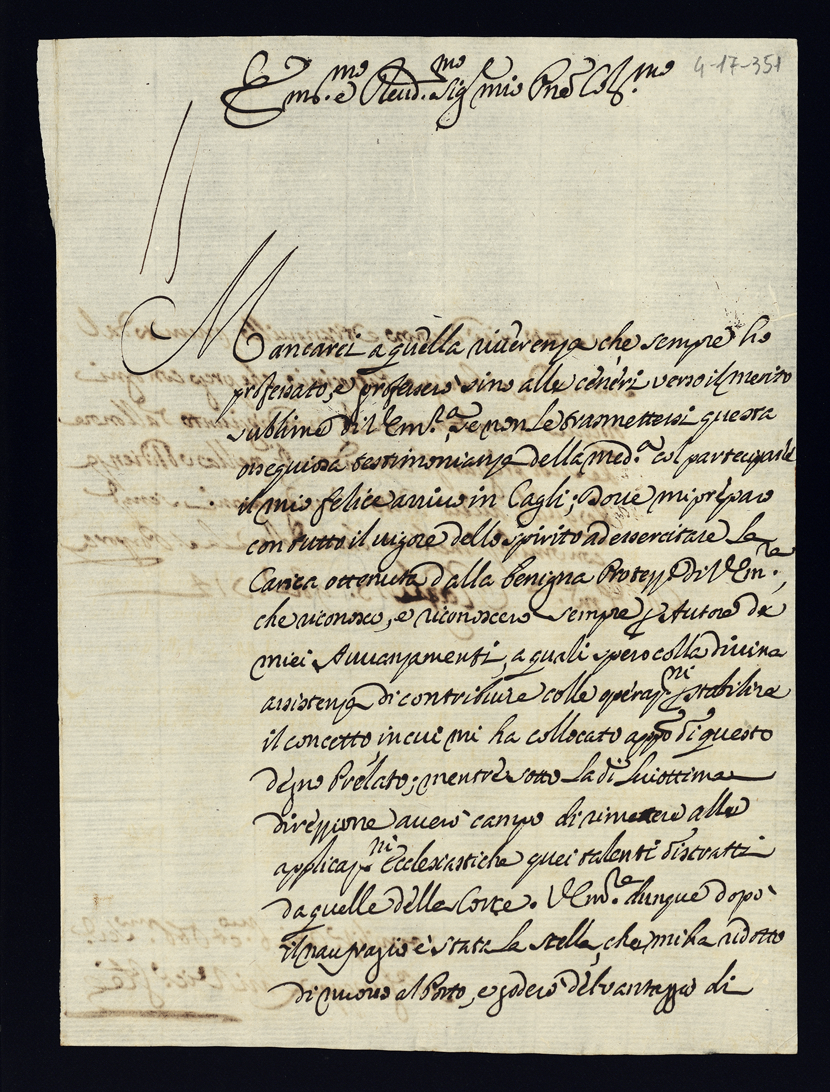 4-17-351
Em.mo e Reud.mo Sig.e mio Pne Col.mo
Mancarei a quella riuerenza che sempre hò
professato, e professerò sino alle ceneri verso il merito
sublime di V Em.a, se non le trasmettessi questa
ossequiosa testimonianza della med.a col parteciparle
il mio felice arriuo in Cagli; Doue mi preparo
con tutto il vigore dello spirito ad essercitare la
Carica ottenuta dalla benigna Protezz.e Di V Em.za,
che riconosco, e riconoscerò sempre p Autore de
miei Auuanzamenti, a quali spero colla diuina
assistenza di contribuire colle operaz.ni p stabilire
il concetto, in cui mi ha collocato appo di questo
degno Prelato; mentre sotto la di lui ottima
direzzione auerò campo di rimettere alle
applicaz.ni Ecclesiastiche quei talenti distratti
da quelle della Corte. V Em.za dunque dopo
il naufragio è stata la stella, che mi ha ridotto
di nuouo al Porto, e goderò del vantaggio di